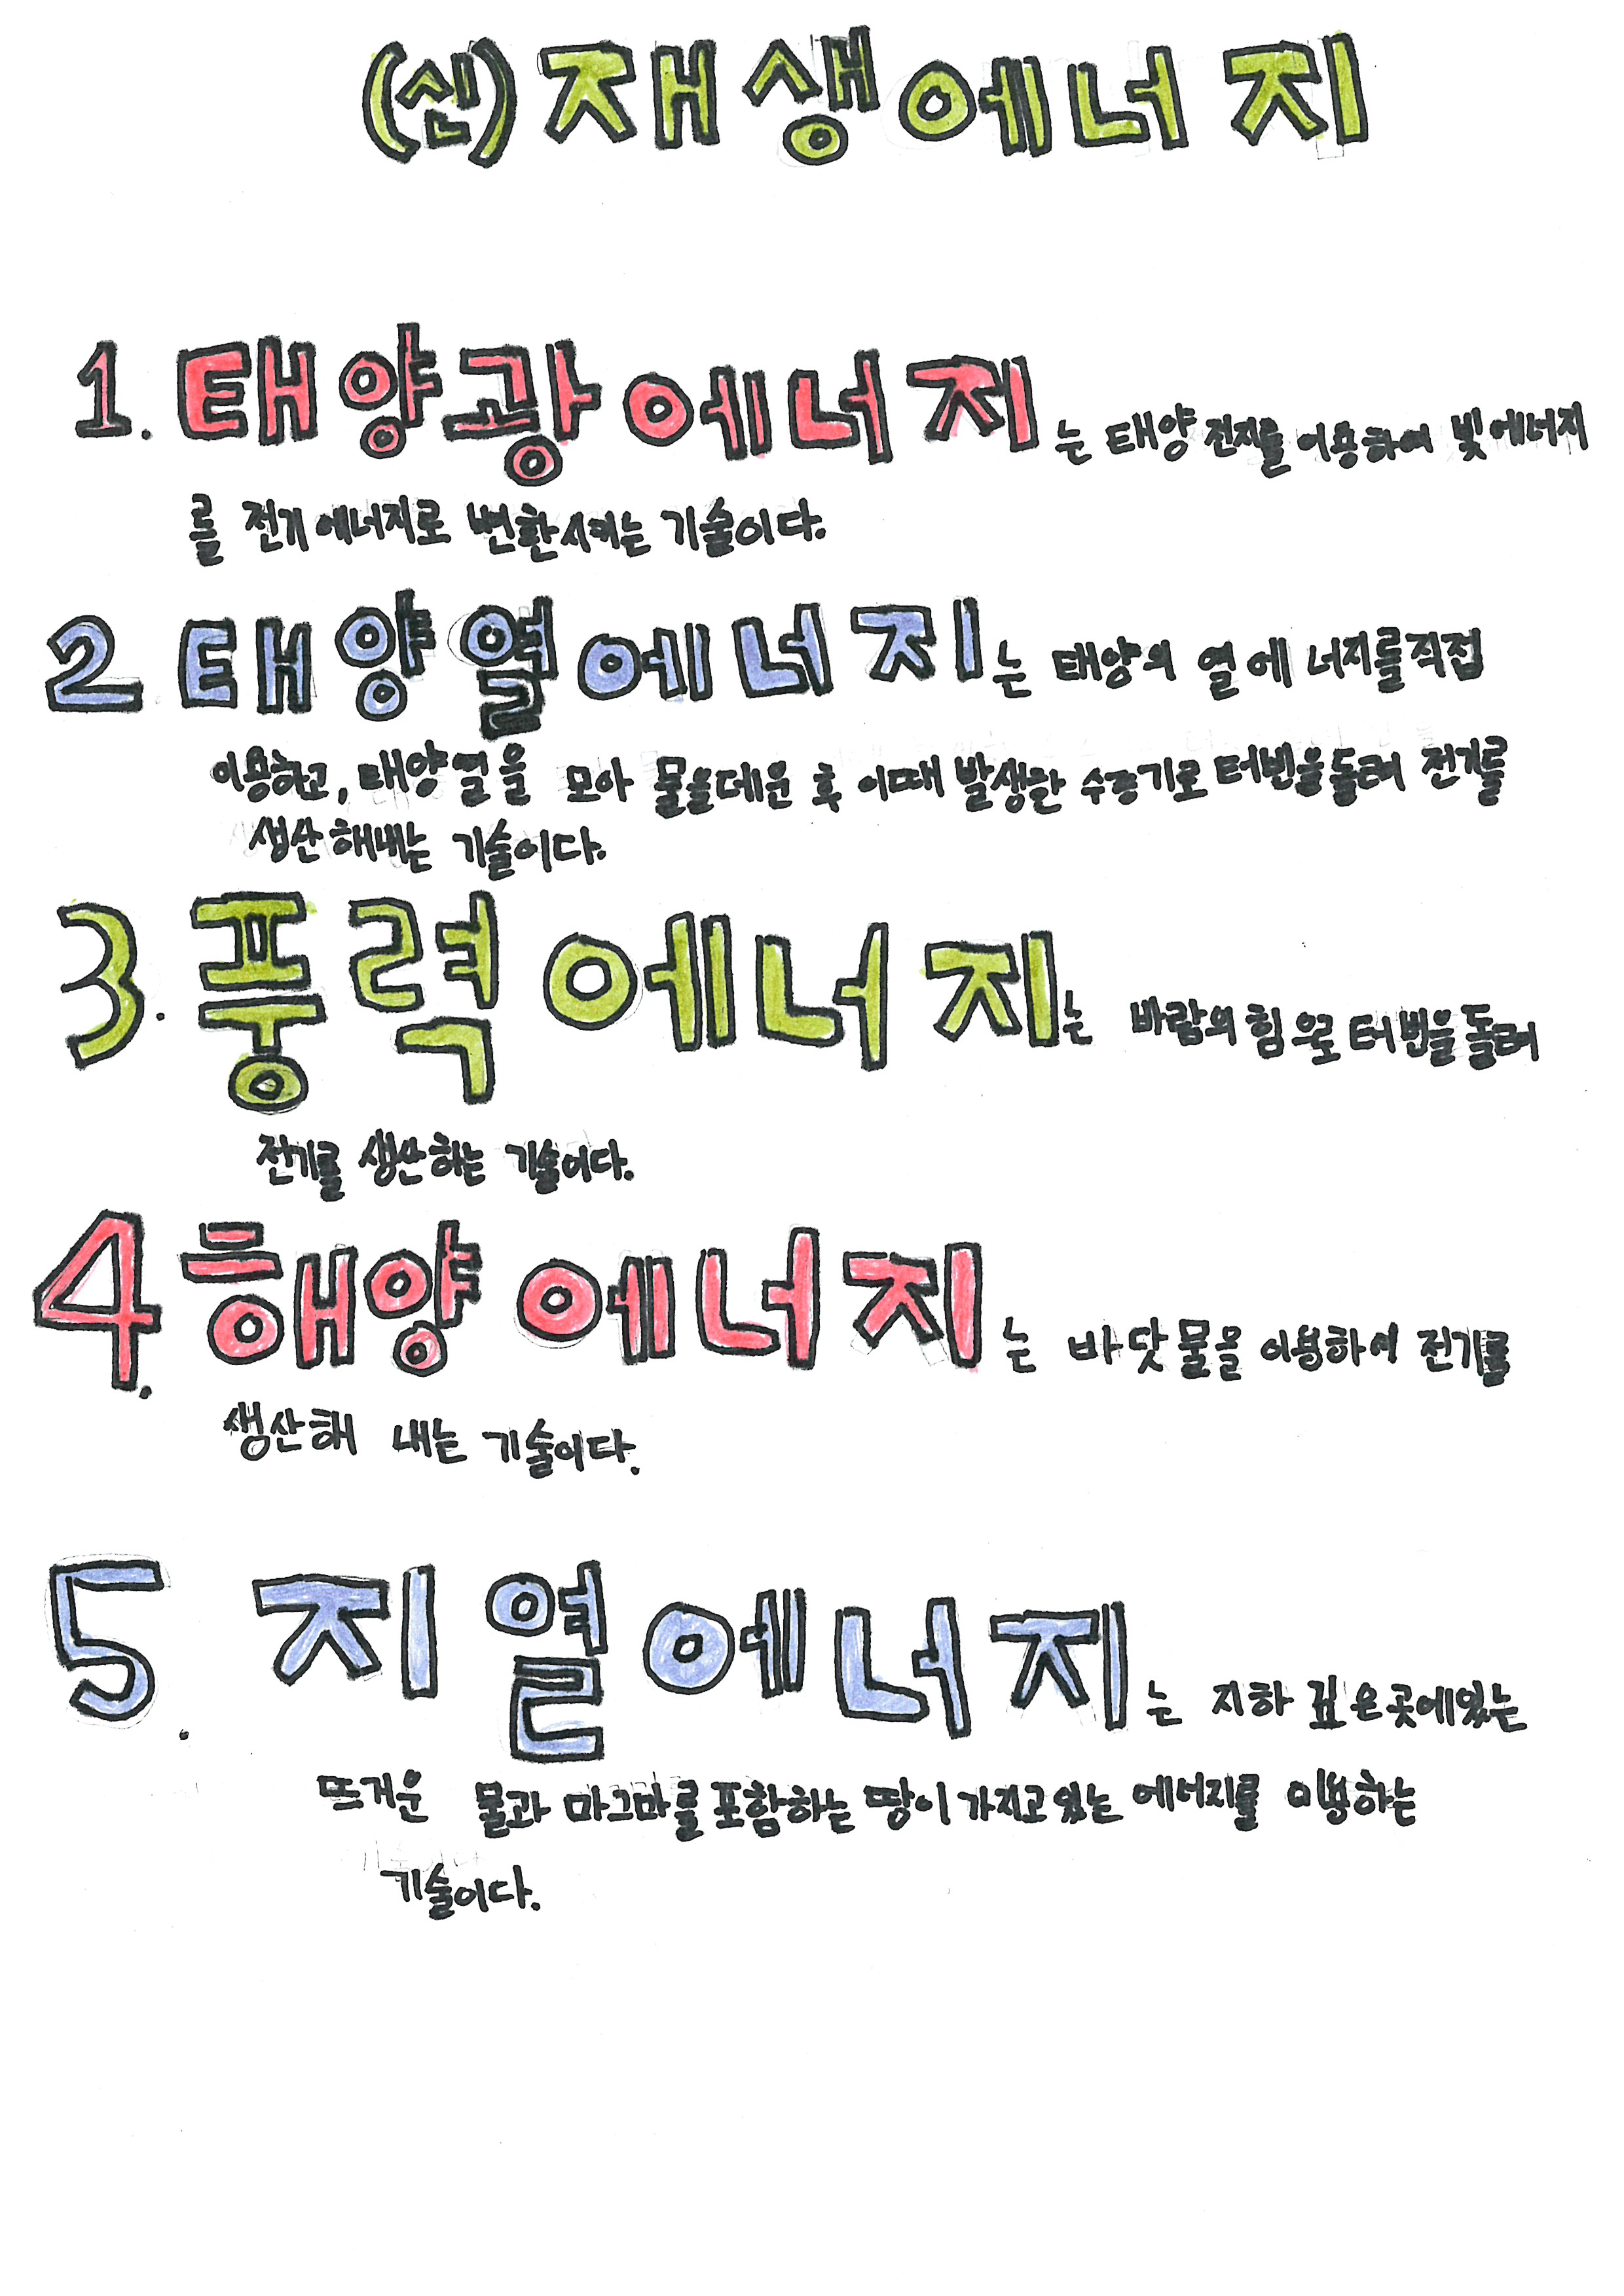 (신)재생에너지
1. 태양광에너지는 태양전지를 이용하여 빛에너지
를 전기에너지로 변환시키는 기술이다.
2. 태양열에너지는 태양의 열에너지를직접
이용하고, 태양열을 모아 물을데운 후 이때 발생한 수증기로 터빈을돌려 전기를
생산해내는 기술이다.
3. 풍력에너지는 바람의 힘으로 터빈을돌려
전기를 생산하는 기술이다.
4. 해양에너지는 바닷물을 이용하여 전기를
생산해 내는 기술이다.
5. 지열에너지는 지하 깊은곳에있는
뜨거운 물과 마그마를 포함하는 땅이 가지고 있는 에너지를 이용하는
기술이다.